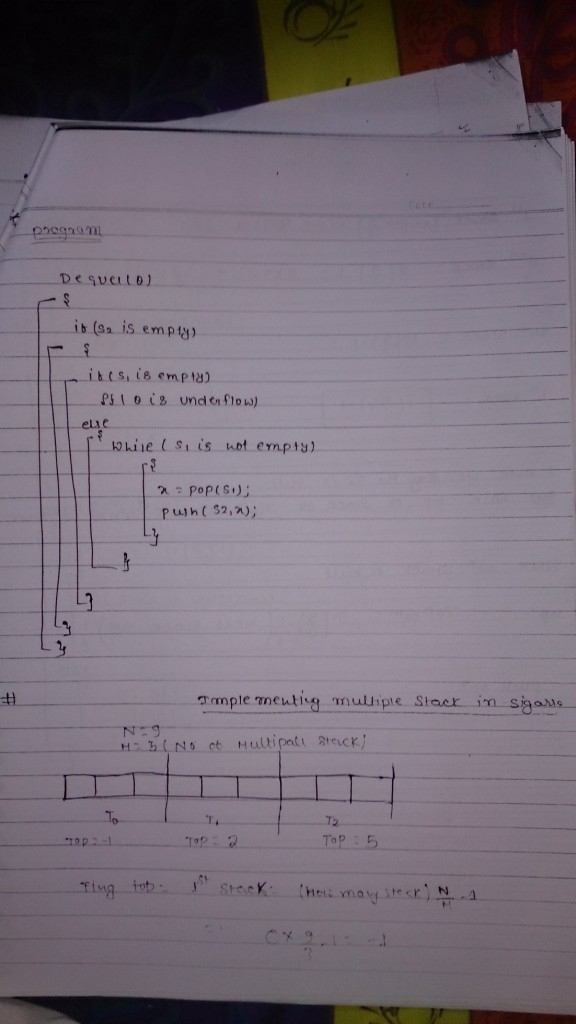 program
Dequei(Q)
{
if (S2 is empty)
{
if (S1 is empty)
Pf (Q is underflow)
else
{ while (S1 is not empty)
{
x = pop(S1);
push(S2,x);
}
}
}
}
}
# Implementing multiple stack in
N=9
M=3 (No of Multipall stack)
T0 T1 T2
TOP=-1 TOP=2 TOP=5
1st stack: (How may steck) N/M -1
9/3 -1 = -1